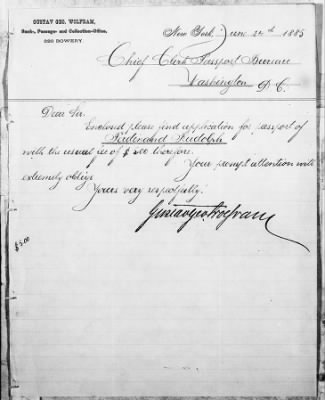 GUSTAV GEO. WOLFRAM,
Bank-, Passage- and Collection-Office,
328 BOWERY
New York, June 24th 1885
Chief Clerk Passport Bureau
Washington D. C.
Dear Sir
Enclosed please find application for passport of
Ferdinand Rudolph
with the usual fee of $5.00 therefore.
Your prompt attention will
extremely oblige
Yours very respectfully.
Gustav Geo Wolfram
$5.00